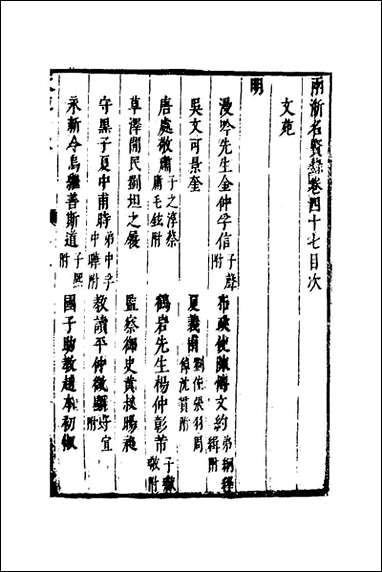 兩浙名賢錄卷四十七目次
文苑
明
漫吟先生金仲孚信子聲附 布政使陳傳文約弟綱緝附
吳文可景奎 夏義甫劉仕張羽周倬沈貫附
唐處敬肅子之淳蔡庸毛鉉附 鶴岩先生楊仲彰芾子敬附
草澤閒民劉坦之履 監察御史黃叔暘昶
守黑子夏中甫時弟中孚中曄附 教讀平仲微顯好宜附
永新令烏繼善斯道子熙附 國子助教趙本初俶